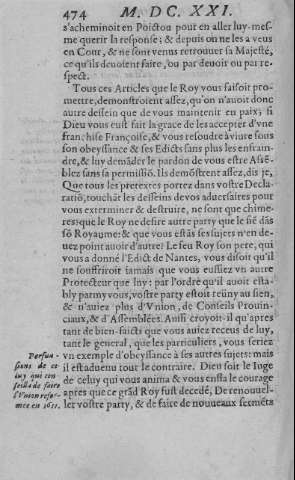 474 M. DC. XXI.
s'acheminoit en Poictou pour en aller luy-mes-
me querir la response; & depuis on ne les a veus
en Cour, & ne sont venus retrouuer sa Majesté,
ce qu'ils deuoient faire, ou par deuoir ou par re-
spect.
Tous ces Articles que le Roy vous faisoit pro-
mettre, demonstroient assez, qu'on n'auoit donc
autre dessein que de vous maintenir en paix; si
Dieu vous eust fait la grace de les accepter d'vne
franchise Françoise, & vous resoudre à viure sous
son obeyssance & ses Edicts sans plus les enfrain-
dre, & luy demãder le pardon de vous estre Assẽ-
blez sans sa permissiõ. Ils demõstrent assez, dis je,
Que tous les pretextes portez dans vostre Decla-
ratiõ, touchãt les desseins de vos aduersaires pour
vous exterminer & destruire, ne sont que chime-
res: que le Roy ne desire autre party que le siẽ dãs
sõ Royaume: & que vous estãs ses sujets n'en de-
uez point auoir d'autre. Le feu Roy son pere, qui
vous a donné l'Edict de Nantes, vous disoit qu'il
ne souffriroit iamais que vous eussiez vn autre
Protecteur que luy: par l'ordre qu'il auoit esta-
bly parmy vous, vostre party estoit reüny au sien,
& n'auiez plus d'Vnion, de Conseils Prouin-
ciaux, & d'Assemblées. Aussi croyoit-il qu'apres
tant de bien-faicts que vous auiez receus de luy,
tant le general, que les particuliers, vous seriez
vn exemple d'obeyssance à ses autres sujets: mais
il est aduenu tout le contraire. Dieu soit le Iuge
de celuy qui vous anima & vous enfla le courage
apres que ce grãd Roy fust decedé, De renouuel-
ler vostre party, & de faire de nouueaux serments
Persua-
sions de ce
luy qui con
seilla de faire
l'Vnion refor-
mee en 1611.